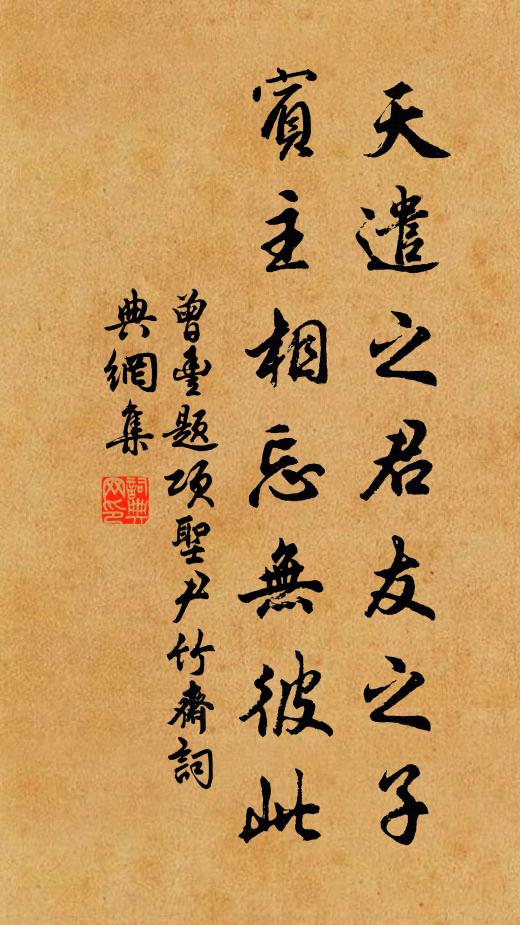 天遣之君友之子
賓主相忘無彼此
曾豐題項聖尹竹齋詞
典網集
詞典
网印